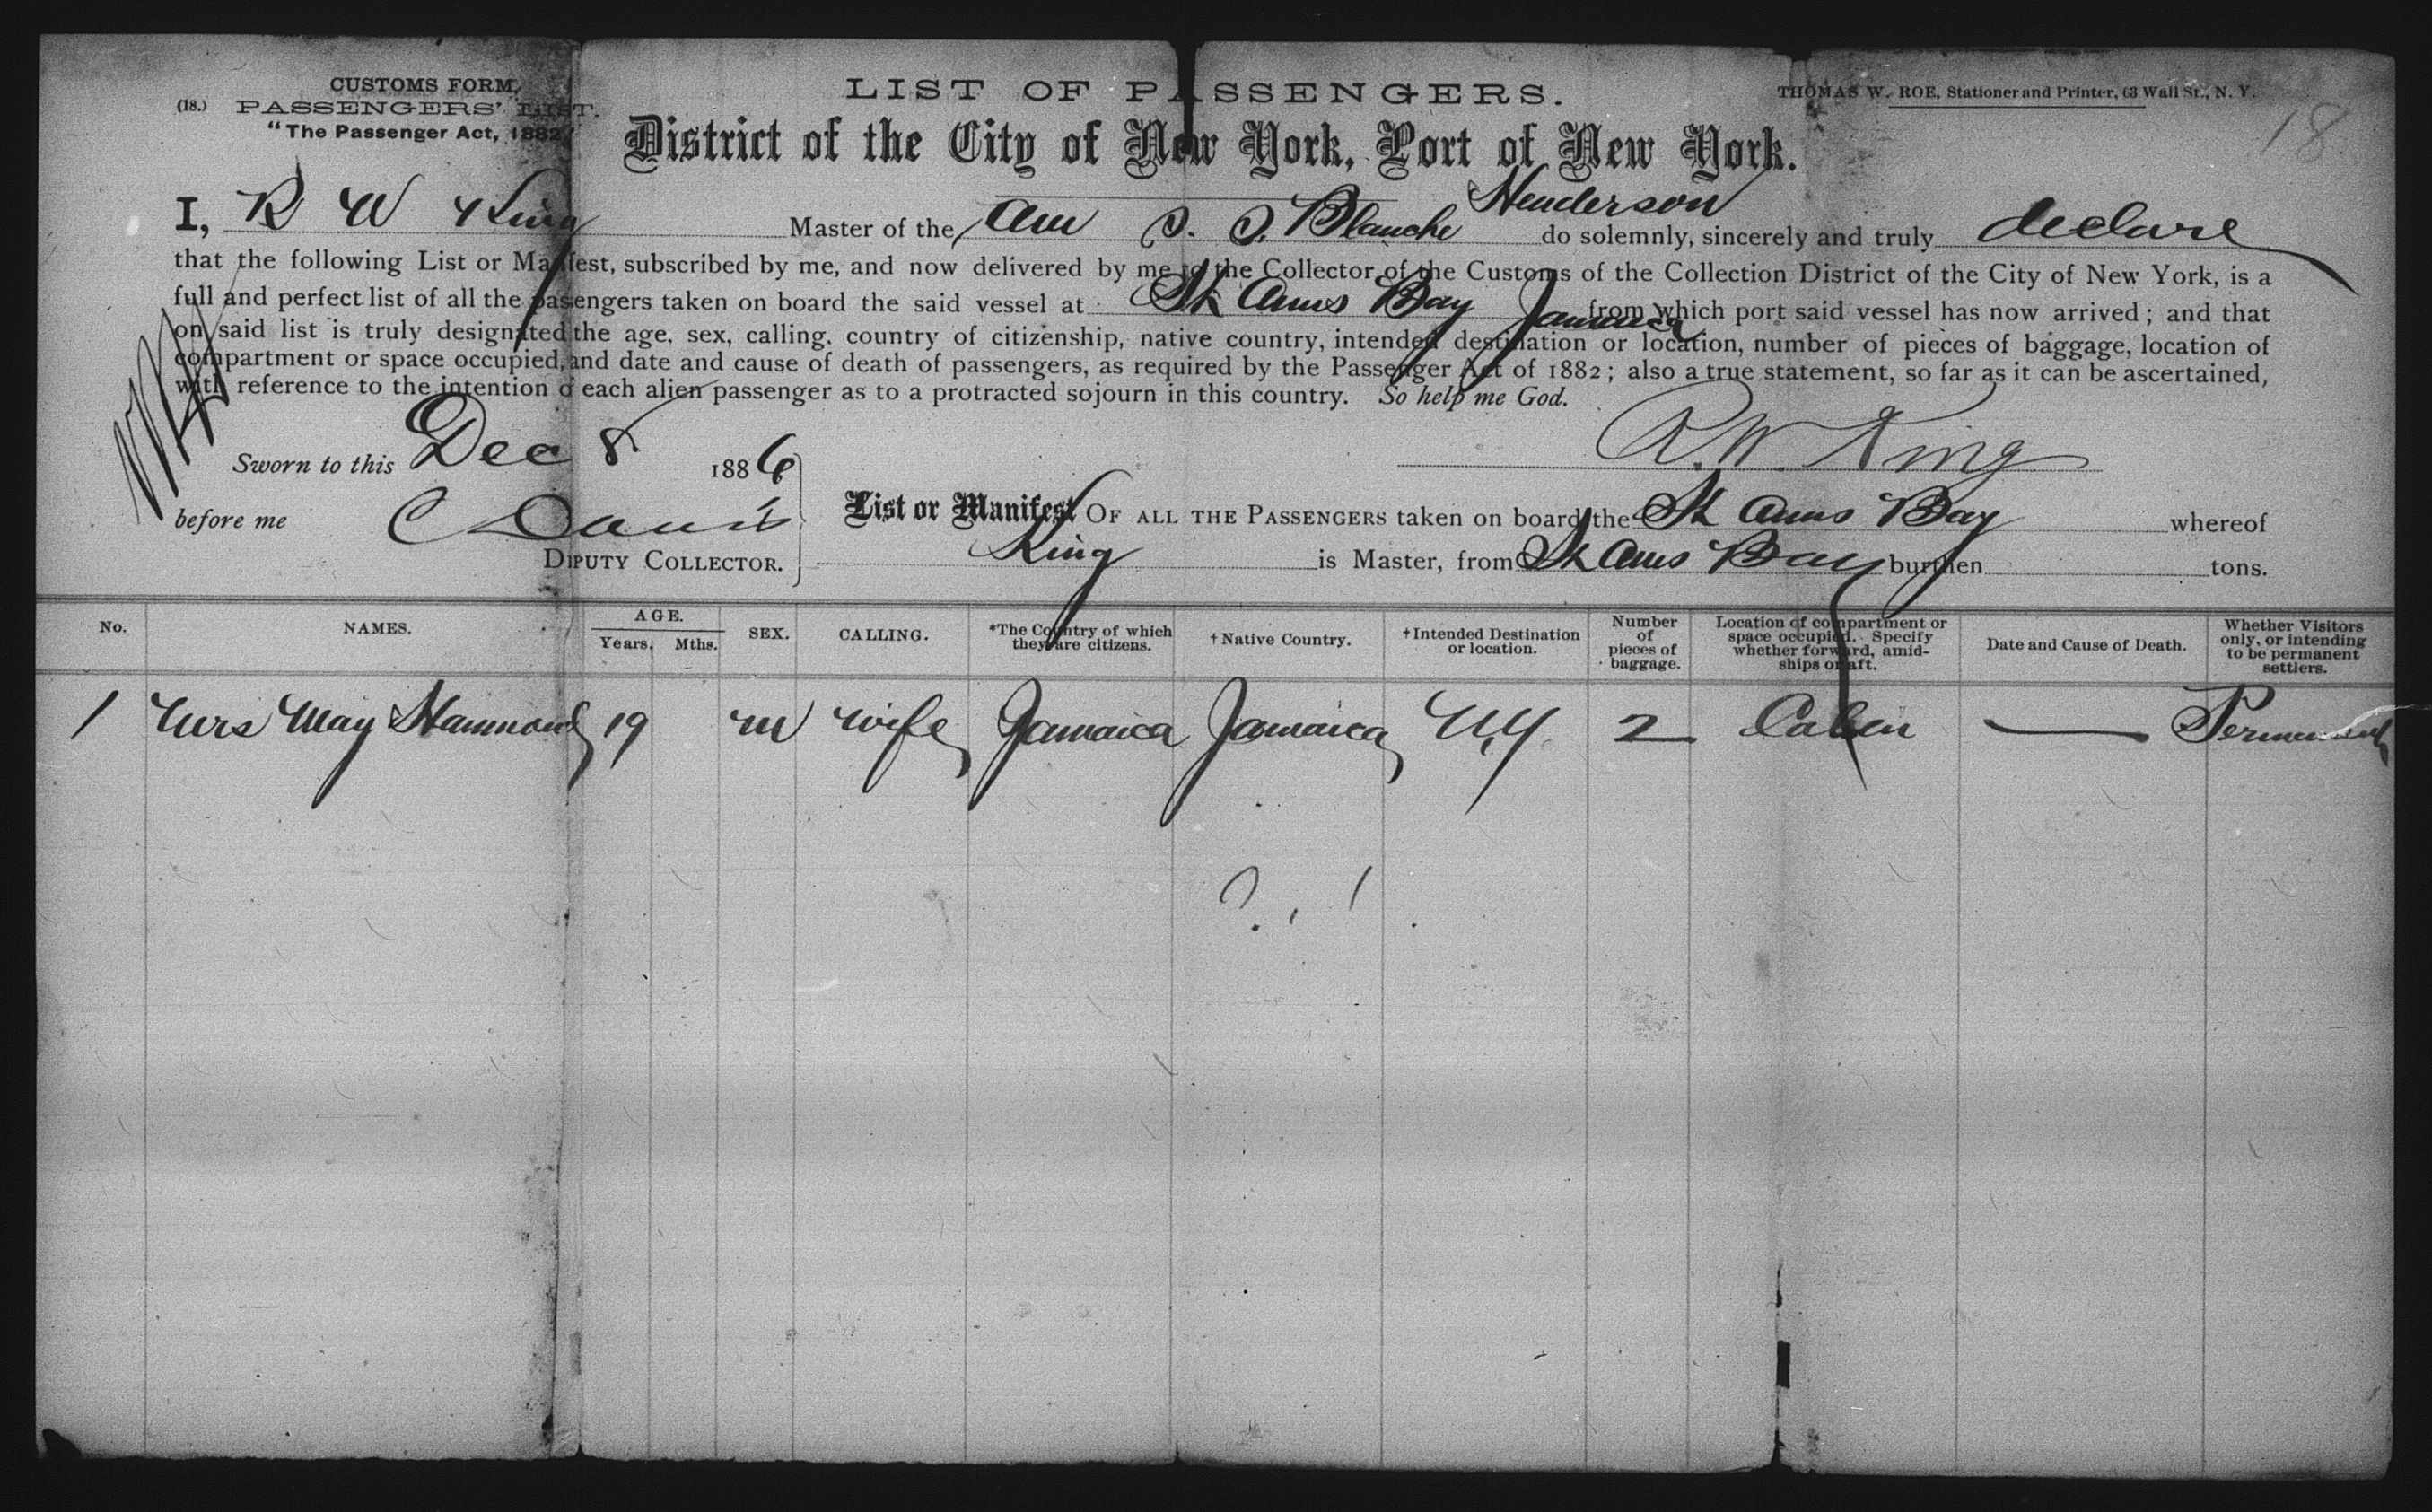 CUSTOMS FORM,
(18.) PASSENGERS' LIST.
"The Passenger Act, 1882."
LIST OF PASSENGERS.
THOMAS W. ROE, Stationer and Printer, 63 Wall St., N. Y.
18
District of the City of New York, Port of New York.
I, R W King Master of the Am S. S. Blanche Henderson do solemnly, sincerely and truly declare
that the following List or Manifest, subscribed by me, and now delivered by me to the Collector of the Customs of the Collection District of the City of New York, is a
full and perfect list of all the passengers taken on board the said vessel at St Anns Bay Jamaica from which port said vessel has now arrived; and that
on said list is truly designated the age, sex, calling, country of citizenship, native country, intended destination or location, number of pieces of baggage, location of
compartment or space occupied, and date and cause of death of passengers, as required by the Passenger Act of 1882; also a true statement, so far as it can be ascertained,
with reference to the intention of each alien passenger as to a protracted sojourn in this country. So help me God.
R. W. King
Sworn to this Dec 8 1886
before me C Davis
DEPUTY COLLECTOR.
List or Manifest OF ALL THE PASSENGERS taken on board the St Anns Bay whereof
King is Master, from St Anns Bay burthen tons.
No. NAMES. AGE. Years. Mths. SEX. CALLING. *The Country of which they are citizens. †Native Country. †Intended Destination or location. Number of pieces of baggage. Location of compartment or space occupied. Specify whether forward, amidships or aft. Date and Cause of Death. Whether Visitors only, or intending to be permanent settlers.
1 Mrs May Hammond 19 m wife Jamaica Jamaica N.Y. 2 Cabin — Permanently